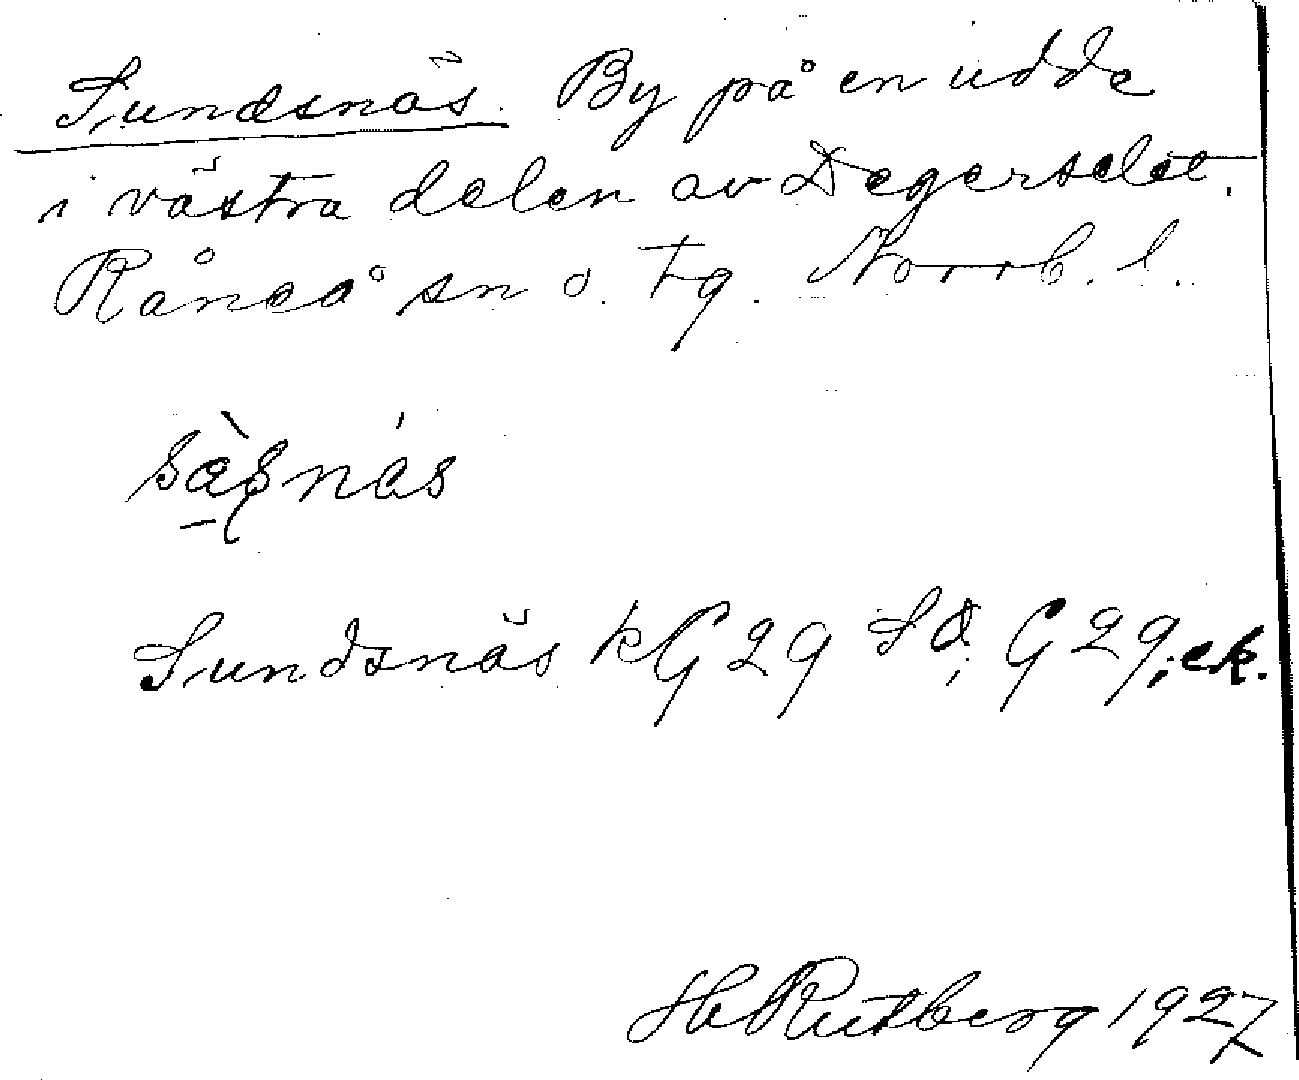 Sundsnäs. By på en udde
i västra delen av Degerselet.
Råneå sn o. tg. Norrb. l.
Sundsnäs kG29 SO; G29; ek.
H Rutberg 1927